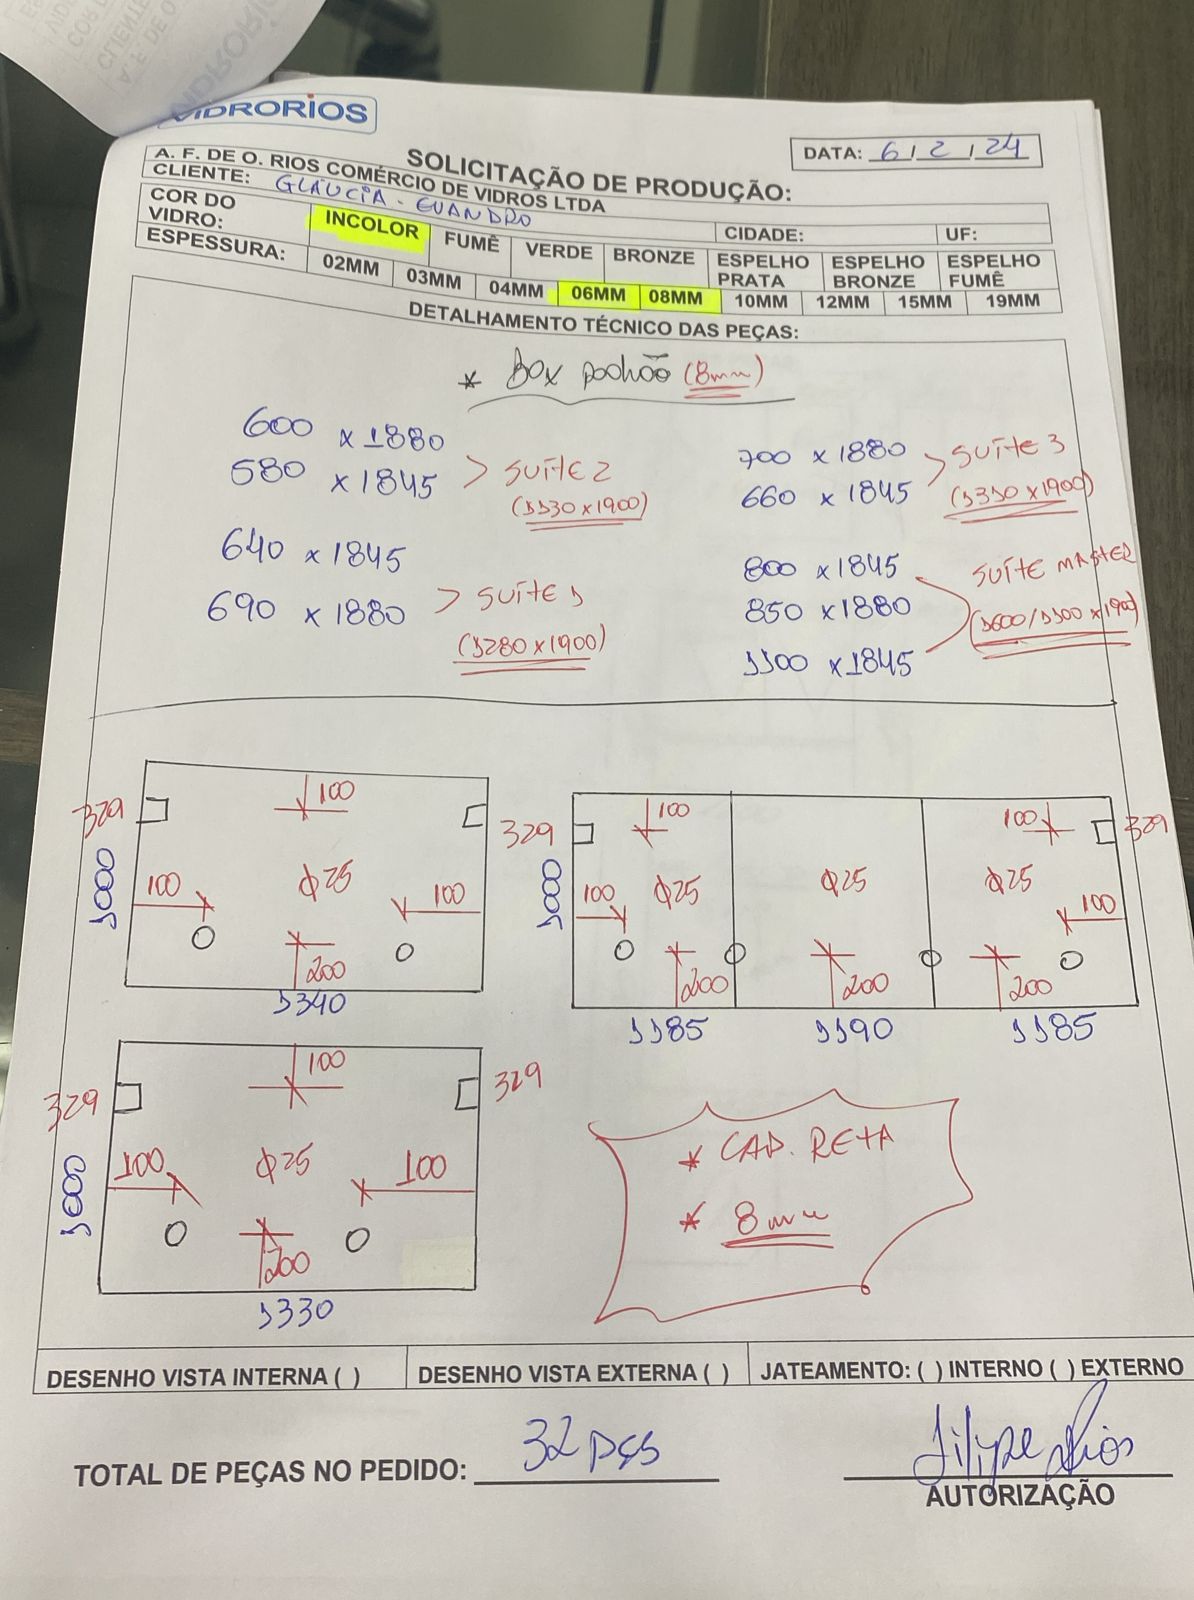 VIDRORIOS
SOLICITAÇÃO DE PRODUÇÃO:
DATA: 6 / 2 / 24
A. F. DE O. RIOS COMÉRCIO DE VIDROS LTDA
CLIENTE: GLÁUCIA - EVANDRO
CIDADE: UF:
COR DO VIDRO: INCOLOR FUMÊ VERDE BRONZE ESPELHO PRATA ESPELHO BRONZE ESPELHO FUMÊ
ESPESSURA: 02MM 03MM 04MM 06MM 08MM 10MM 12MM 15MM 19MM
DETALHAMENTO TÉCNICO DAS PEÇAS:
* Box padrão (8mm)
600 x 1880
580 x 1845
SUÍTE 2
(1130x1900)
640 x 1845
690 x 1880
SUÍTE 1
(1280x1900)
700 x 1880
660 x 1845
SUÍTE 3
(1310x1900)
800 x 1845
850 x 1880
1100 x 1845
SUÍTE MASTER
(1600/1100x1900)
329
100
329
1000
100
Φ25
100
200
1340
100
100
329
1000
100
Φ25
Φ25
Φ25
100
200
200
200
1185
1190
1185
329
100
329
1000
100
Φ25
100
200
1330
* CAD. RETA
* 8mm
DESENHO VISTA INTERNA ( )
DESENHO VISTA EXTERNA ( )
JATEAMENTO: ( ) INTERNO ( ) EXTERNO
TOTAL DE PEÇAS NO PEDIDO: 32 pçs
Filipe Rios
AUTORIZAÇÃO